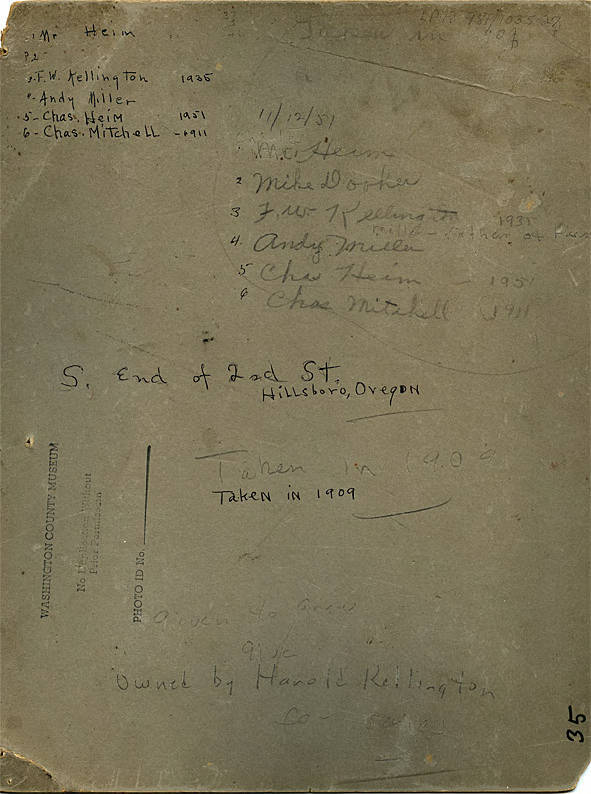 1 Mr Heim
P.2-
3-F.W. Kellington 1935
4-Andy Miller
5-Chas. Heim 1951
6-Chas. Mitchell -1911
Taken in
11/12/51
Mr. Heim
2 Mike Dooher
3 F.W. Kellington 1935
4. Andy Miller
5 Chas Heim - 1951
6 Chas Mitchell 1911
S. End of 2nd St.
Hillsboro, Oregon
Taken in 1909
Taken in 1909
WASHINGTON COUNTY MUSEUM
No Duplication Without
Prior Permission
PHOTO ID No.
Given to
Owned by Harold Kellington
Co-
35